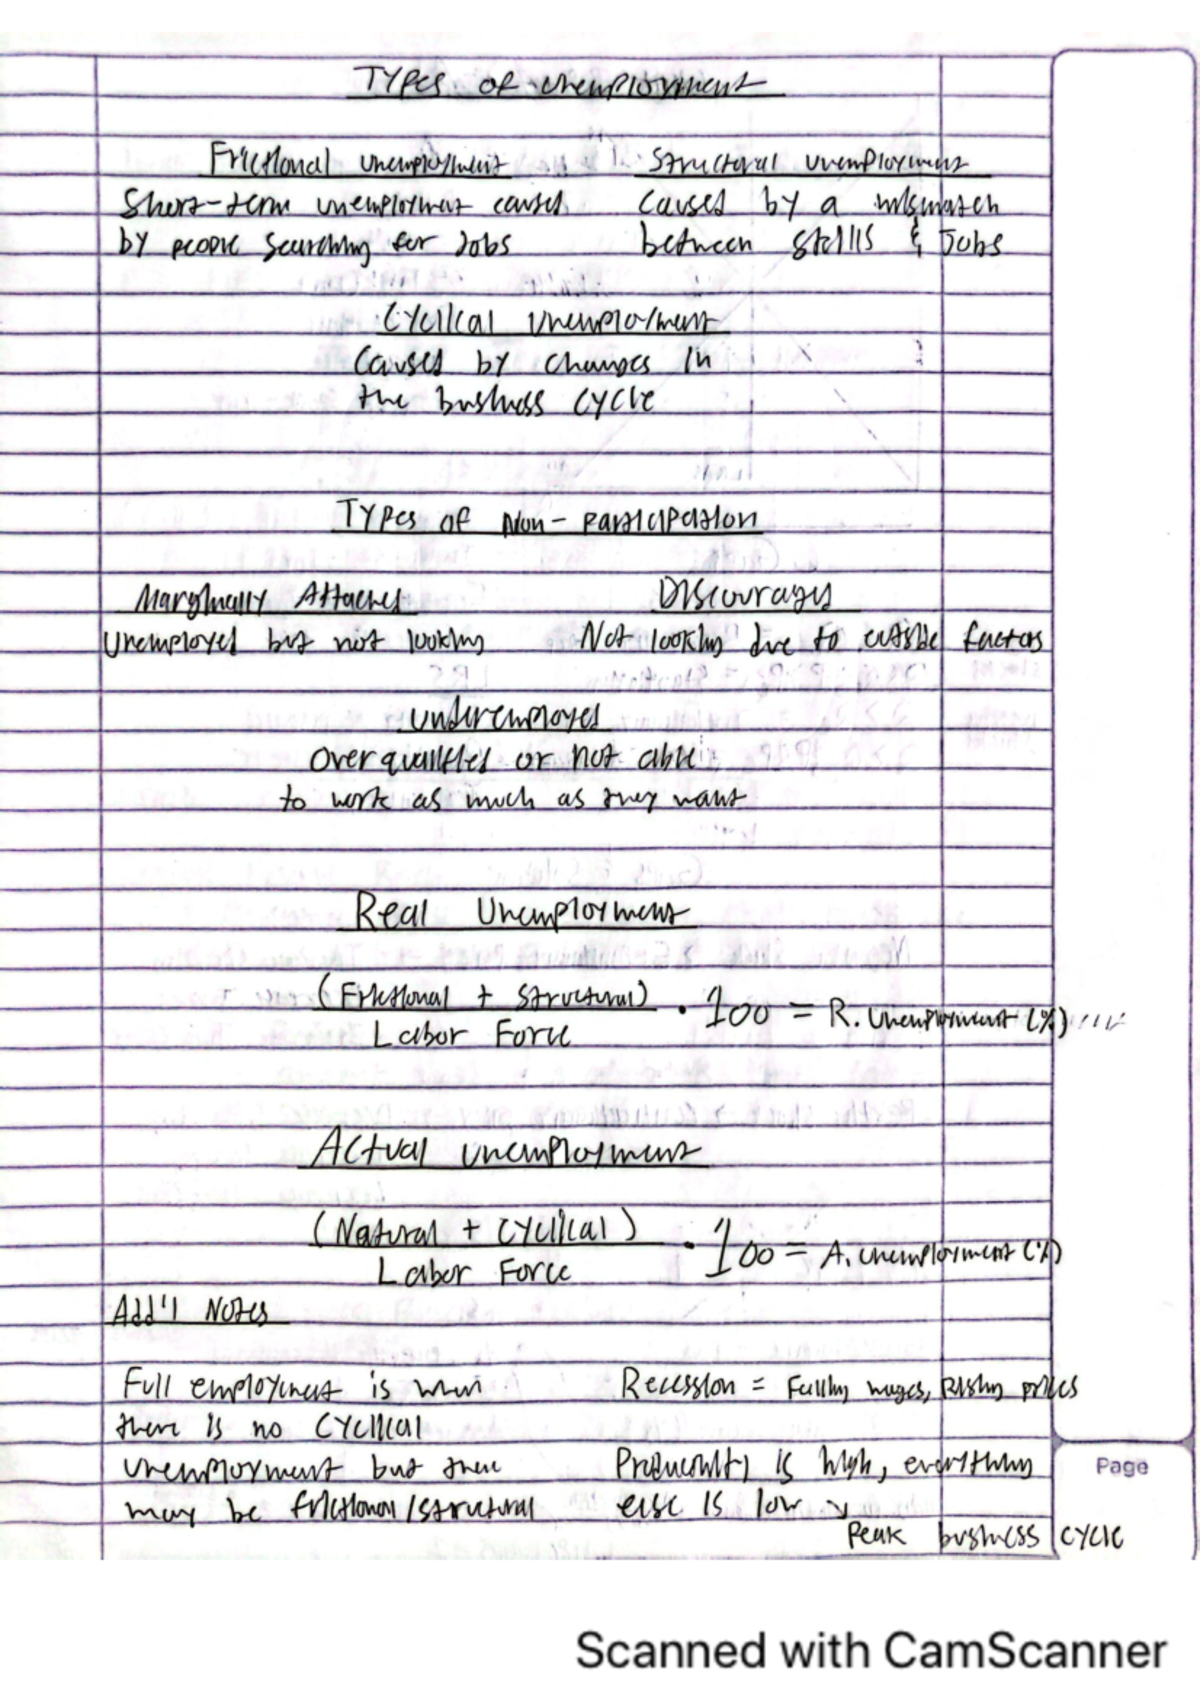 Types of unemployment
Frictional unemployment
Structural unemployment
Short-term unemployment caused
by people searching for Jobs
Causes by a mismatch
between skills & Jobs
Cyclical unemployment
Causes by changes in
the business cycle
Types of Non-Participation
Marginally Attached
Unemployed but not looking
Discourages
Not looking due to outside factors
Underemployed
Over qualified or not able
to work as much as they want
Real Unemployment
(Frictional + Structural)
Labor Force
· 100 = R. Unemployment (%)
Actual unemployment
(Natural + Cyclical)
Labor Force
· 100 = A. unemployment (%)
Add'l Notes
Full employment is when
there is no cyclical
unemployment but there
may be frictional/structural
Recession = Falling wages, Rising prices
Productivity is high, everything
else is low
Peak business cycle
Page
Scanned with CamScanner